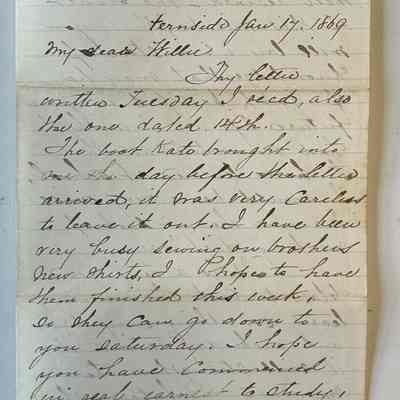 Fernside Jan 17. 1869
My dear Willie
Thy letter
written Tuesday I rec'd, also
the one dated 14th.
The boot Kate brought into
me the day before the letter
arrived, it was very careless
to leave it out. I have been
very busy sewing on brothers
new shirts, I hope to have
them finished this week,
so they can go down to
you Saturday. I hope
you have commenced
in real earnest to study,